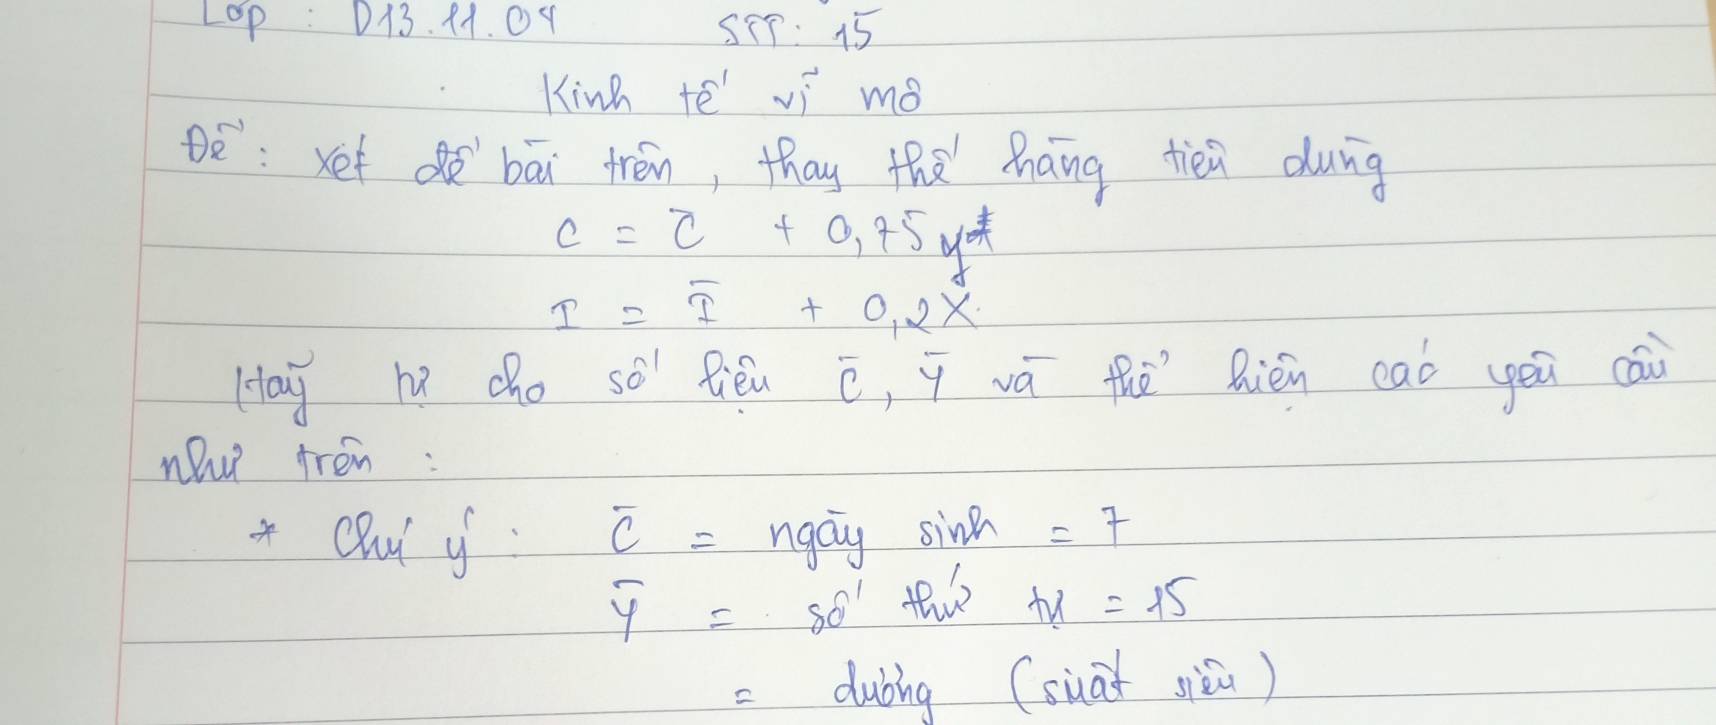 Lớp : D13.11.04 STT: 15
Kinh tế vĩ mô
Đề: xét đề bài trên, thay thế hàng tiêu dùng
C = C̄ + 0,75 y
I = Ī + 0,2X.
Hãy tự cho số liệu C̄, Ȳ và thể hiện các yêu cầu
như trên :
* Chú ý : C̄ = ngày sinh = 7
Ȳ = số thứ tự = 15
= dương (suất siêu)